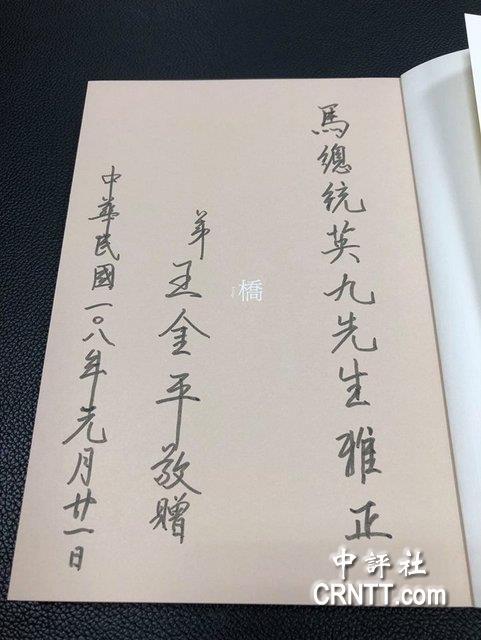 馬總統英九先生雅正
橋
弟 王金平敬贈
中華民國一〇八年元月廿一日
中評社
CRNTT.com